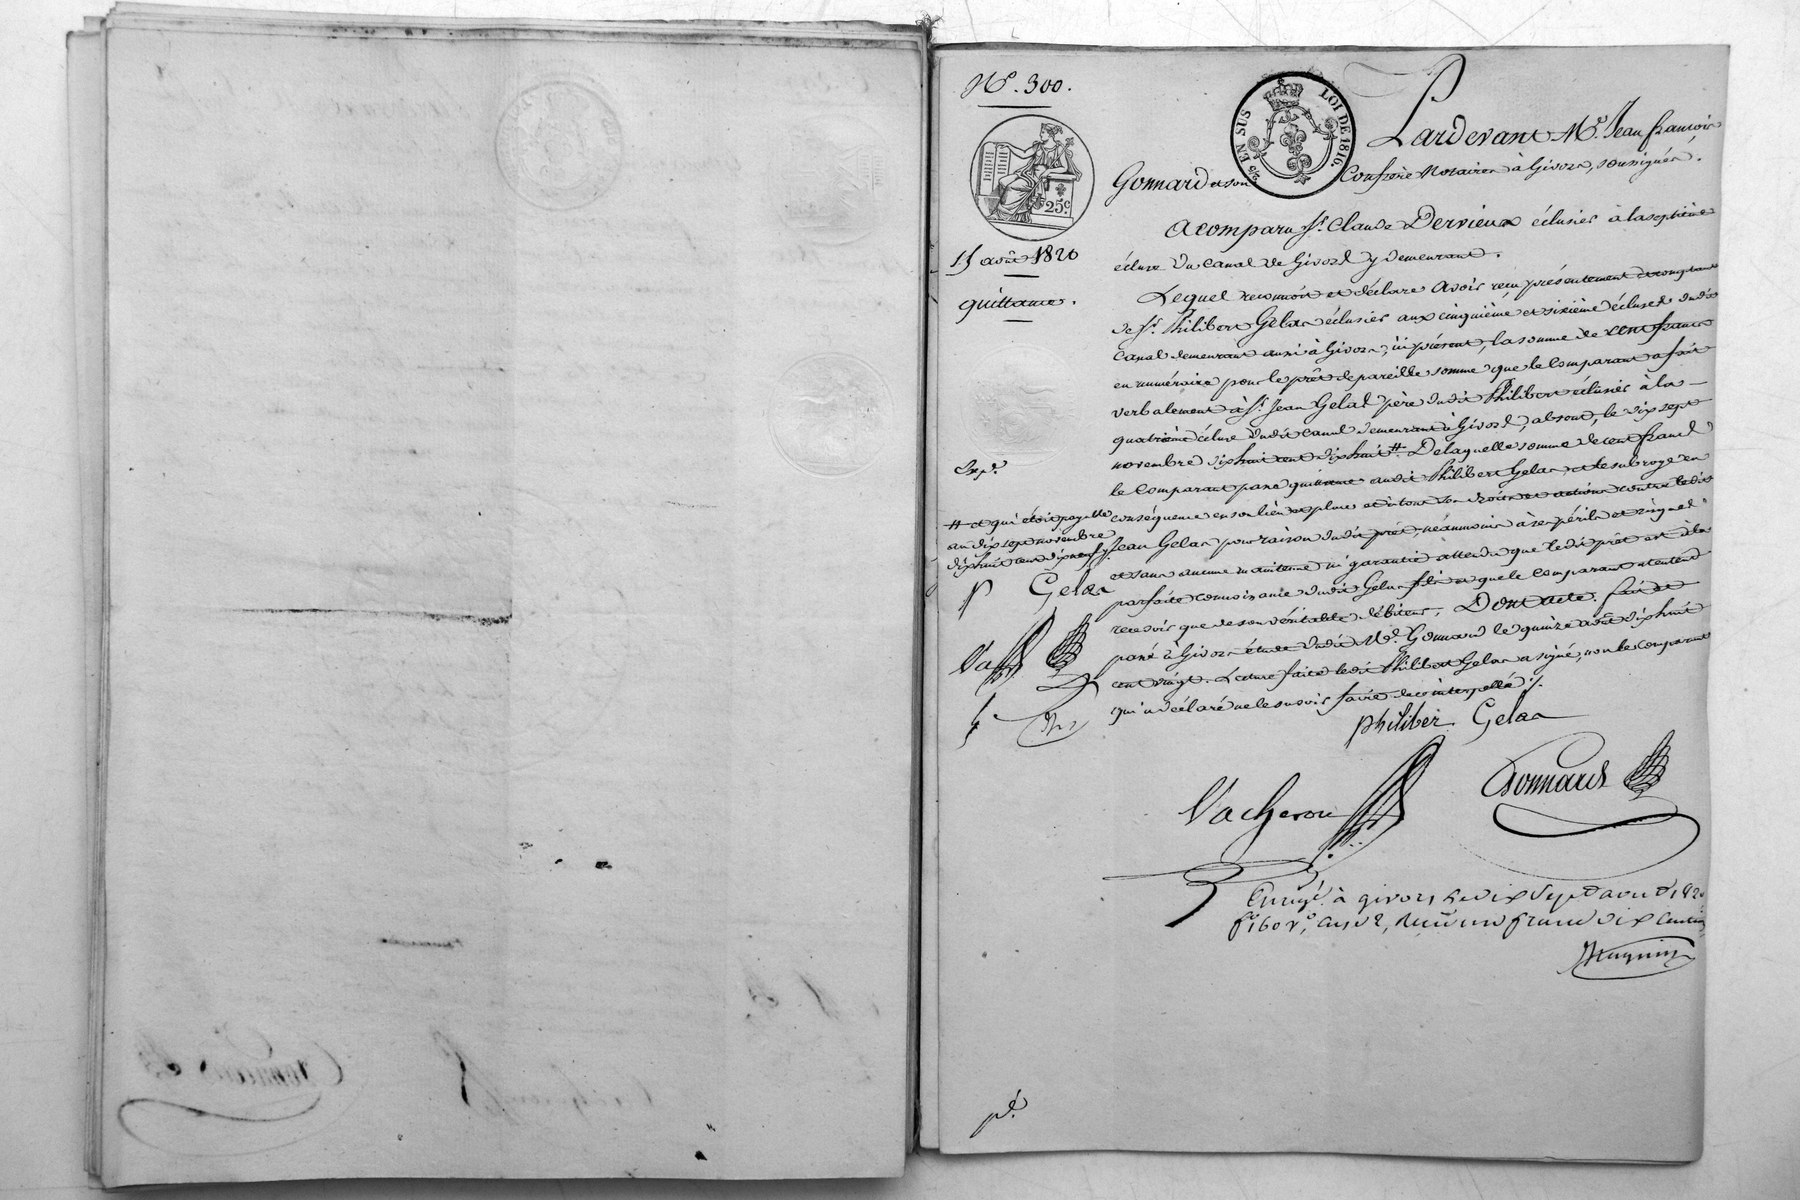 N.º 300.
EN SUS
LOI DE 1816.
25.c
15 août 1820
quittance.
Pardevant M.e Jean françois
Gonnard et son Confrère Notaires à Givors, soussignés.
A comparu s.r Claude Dervieux éclusier à la septième
écluse du Canal de Givors y demeurant.
Lequel reconnoit et déclare avoir reçu présentement et comptant
de s.r Philibert Gelas éclusier aux cinquième et sixième écluses dudit
Canal demeurant aussi à Givors, ici présent, la somme de cent francs
en numéraire pour le prêt de pareille somme que le Comparant a fait
verbalement à s.r Jean Gelas père dudit Philibert éclusier à la
quatrième écluse dudit Canal demeurant à Givors, absent, le dix sept
novembre dix huit cent dix huit #. De laquelle somme de cent francs
le Comparant passe quittance audit Philibert Gelas et le subroge en
conséquence en son lieu et place et en tous ses droits et actions contre ledit
Jean Gelas pour raison dudit prêt, néanmoins à ses périls et risques
et sans aucune maintenue ni garantie attendu que ledit prêt est à la
parfaite connoissance dudit Gelas fils et que le Comparant n'entend
recevoir que de son véritable débiteur. Dont acte. fait et
passé à Givors étude dudit M.e Gonnard le quinze août dix huit
cent vingt. Lecture faite ledit Philibert Gelas a signé, non le comparant
qui a déclaré ne le savoir faire de ce interpellé.
Exp.é
# et qui étoit payable
au dix sept novembre
dix huit cent dix neuf
Gelas
Va
philiber Gelas
Vacheron
Gonnard
Enreg.é à givors le dix Sept aout 1820
f.o 160 v.o, Case 2, Reçu un franc dix Centimes
p.é